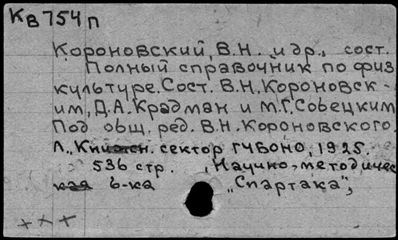 Кв 754 п
Короновский, В.Н. и др., сост.
Полный справочник по физ
культуре. Сост. В.Н. Короновск-
им, Д.А. Крадман и М.Г. Собецким
Под общ. ред. В.Н. Короновского.
Л., Книжн. сектор ГУБОНО, 1925.
536 стр. „Научно-методичес
кая б-ка „Спартака",
+++